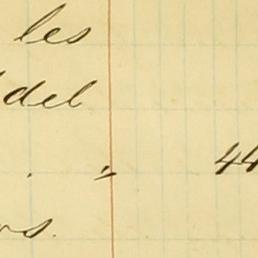 les
del
. " 44
rs.